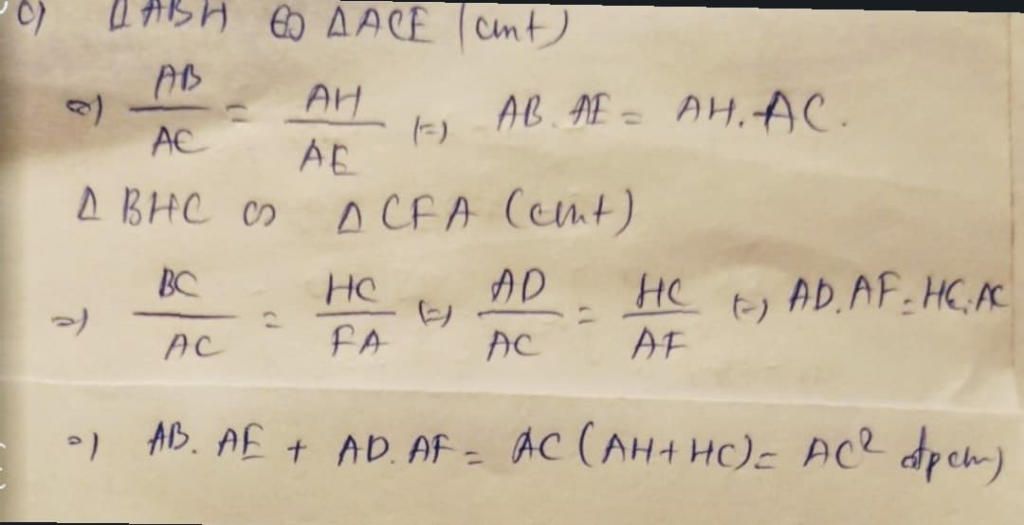 c) Δ ABH ∽ Δ ACE (cmt)
=) AB/AC = AH/AE (=) AB. AE = AH. AC.
Δ BHC ∽ Δ CFA (cmt)
=) BC/AC = HC/FA (=) AD/AC = HC/AF (=) AD. AF = HC. AC
=) AB. AE + AD. AF = AC (AH + HC) = AC² đpcm)